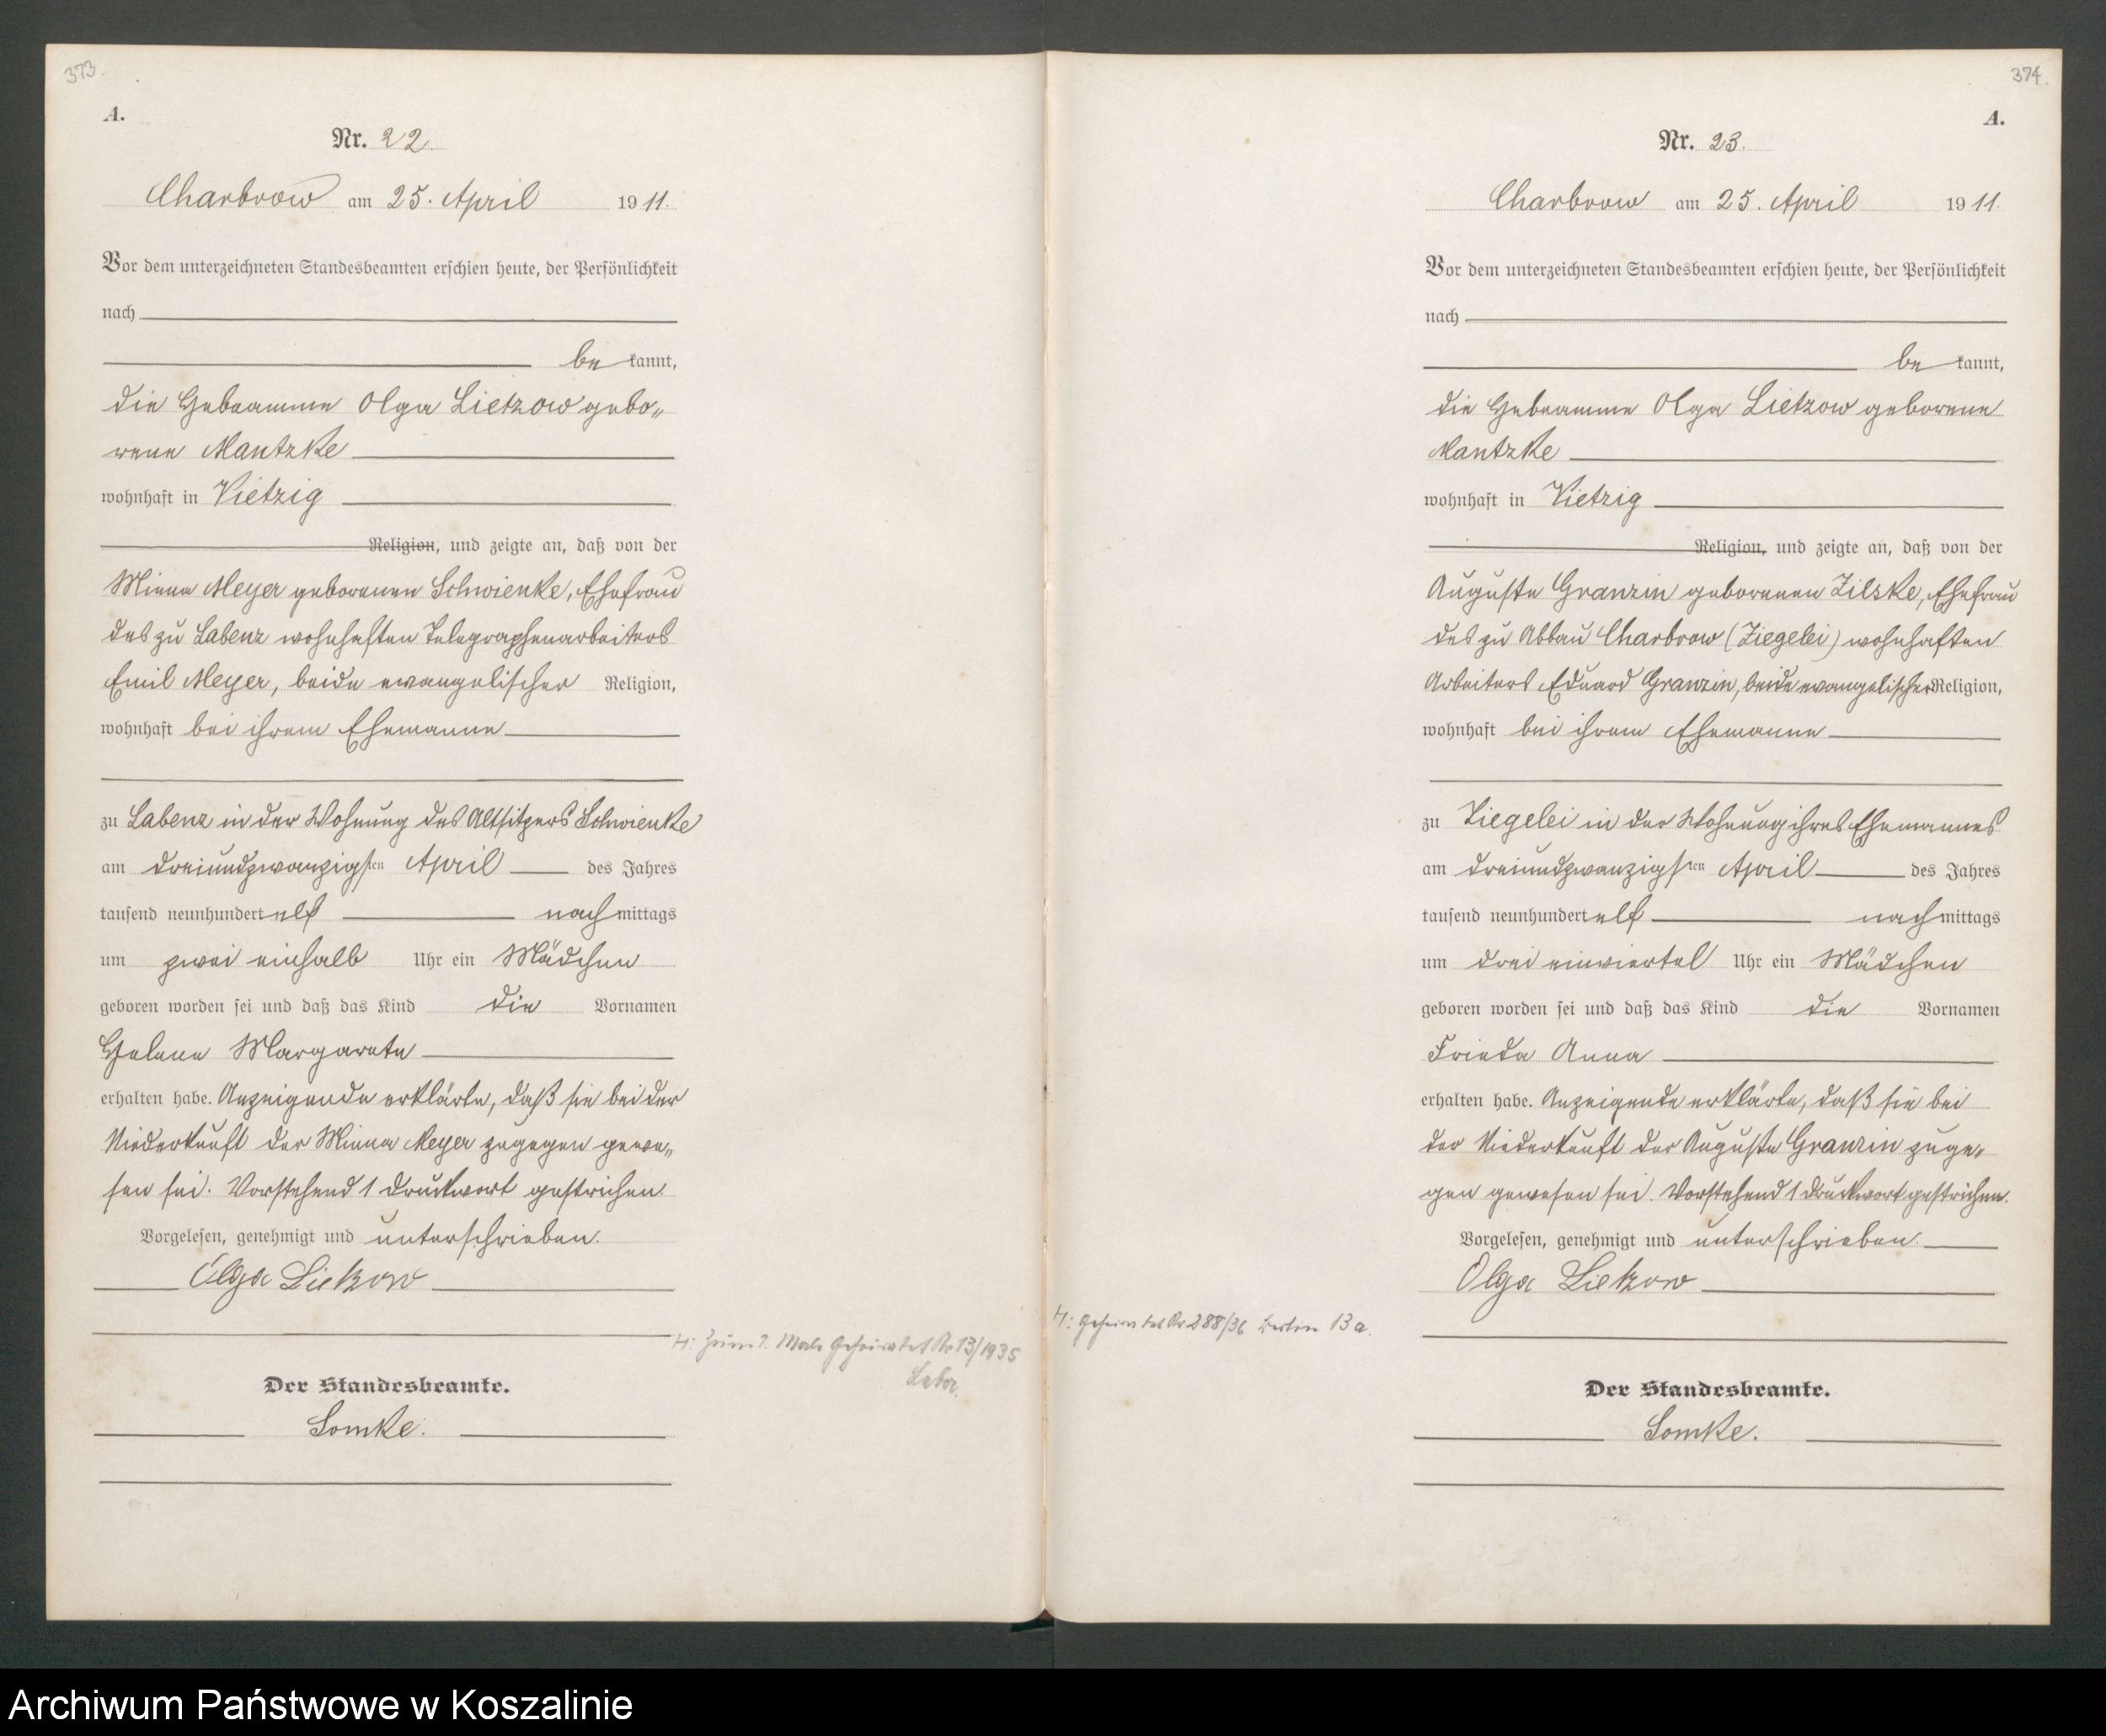 373.
A.
Nr. 22.
Charbrow am 25. April 1911.
Vor dem unterzeichneten Standesbeamten erschien heute, der Persönlichkeit
nach
be kannt,
die Hebeamme Olga Lietzow gebo„
rene Mantzke
wohnhaft in Vietzig
Religion, und zeigte an, daß von der
Minna Meyer geborenen Schwienke, Ehefrau
des zu Labenz wohnhaften Telegraphenarbeiters
Emil Meyer, beide evangelischer Religion,
wohnhaft bei ihrem Ehemanne
zu Labenz in der Wohnung des Altsitzers Schwienke
am dreiundzwanzigsten April des Jahres
tausend neunhundert elf nachmittags
um zwei einhalb Uhr ein Mädchen
geboren worden sei und daß das Kind die Vornamen
Helene Margarete
erhalten habe. Anzeigende erklärte, daß sie bei der
Niederkunft der Minna Meyer zugegen gewe„
sen sei. Vorstehend 1 Druckwort gestrichen.
Vorgelesen, genehmigt und unterschrieben.
Olga Lietzow
H: Zum 2. Male geheiratet Nr 13/1935
Der Standesbeamte.
Lomke.
374.
A.
Nr. 23.
Charbrow am 25. April 1911.
Vor dem unterzeichneten Standesbeamten erschien heute, der Persönlichkeit
nach
be kannt,
die Hebeamme Olga Lietzow geborene
Mantzke
wohnhaft in Vietzig
Religion, und zeigte an, daß von der
Auguste Granzin geborenen Zilske, Ehefrau
des zu Abbau Charbrow (Ziegelei) wohnhaften
Arbeiters Eduard Granzin, beide evangelischer Religion,
wohnhaft bei ihrem Ehemanne
zu Ziegelei in der Wohnung ihres Ehemannes
am dreiundzwanzigsten April des Jahres
tausend neunhundert elf nachmittags
um drei einviertel Uhr ein Mädchen
geboren worden sei und daß das Kind die Vornamen
Frieda Anna
erhalten habe. Anzeigende erklärte, daß sie bei
der Niederkunft der Auguste Granzin zuge„
gen gewesen sei. Vorstehend 1 Druckwort gestrichen.
Vorgelesen, genehmigt und unterschrieben.
Olga Lietzow
H: geheiratet Nr 288/36 Berlin 13a.
Der Standesbeamte.
Lomke.
Archiwum Państwowe w Koszalinie